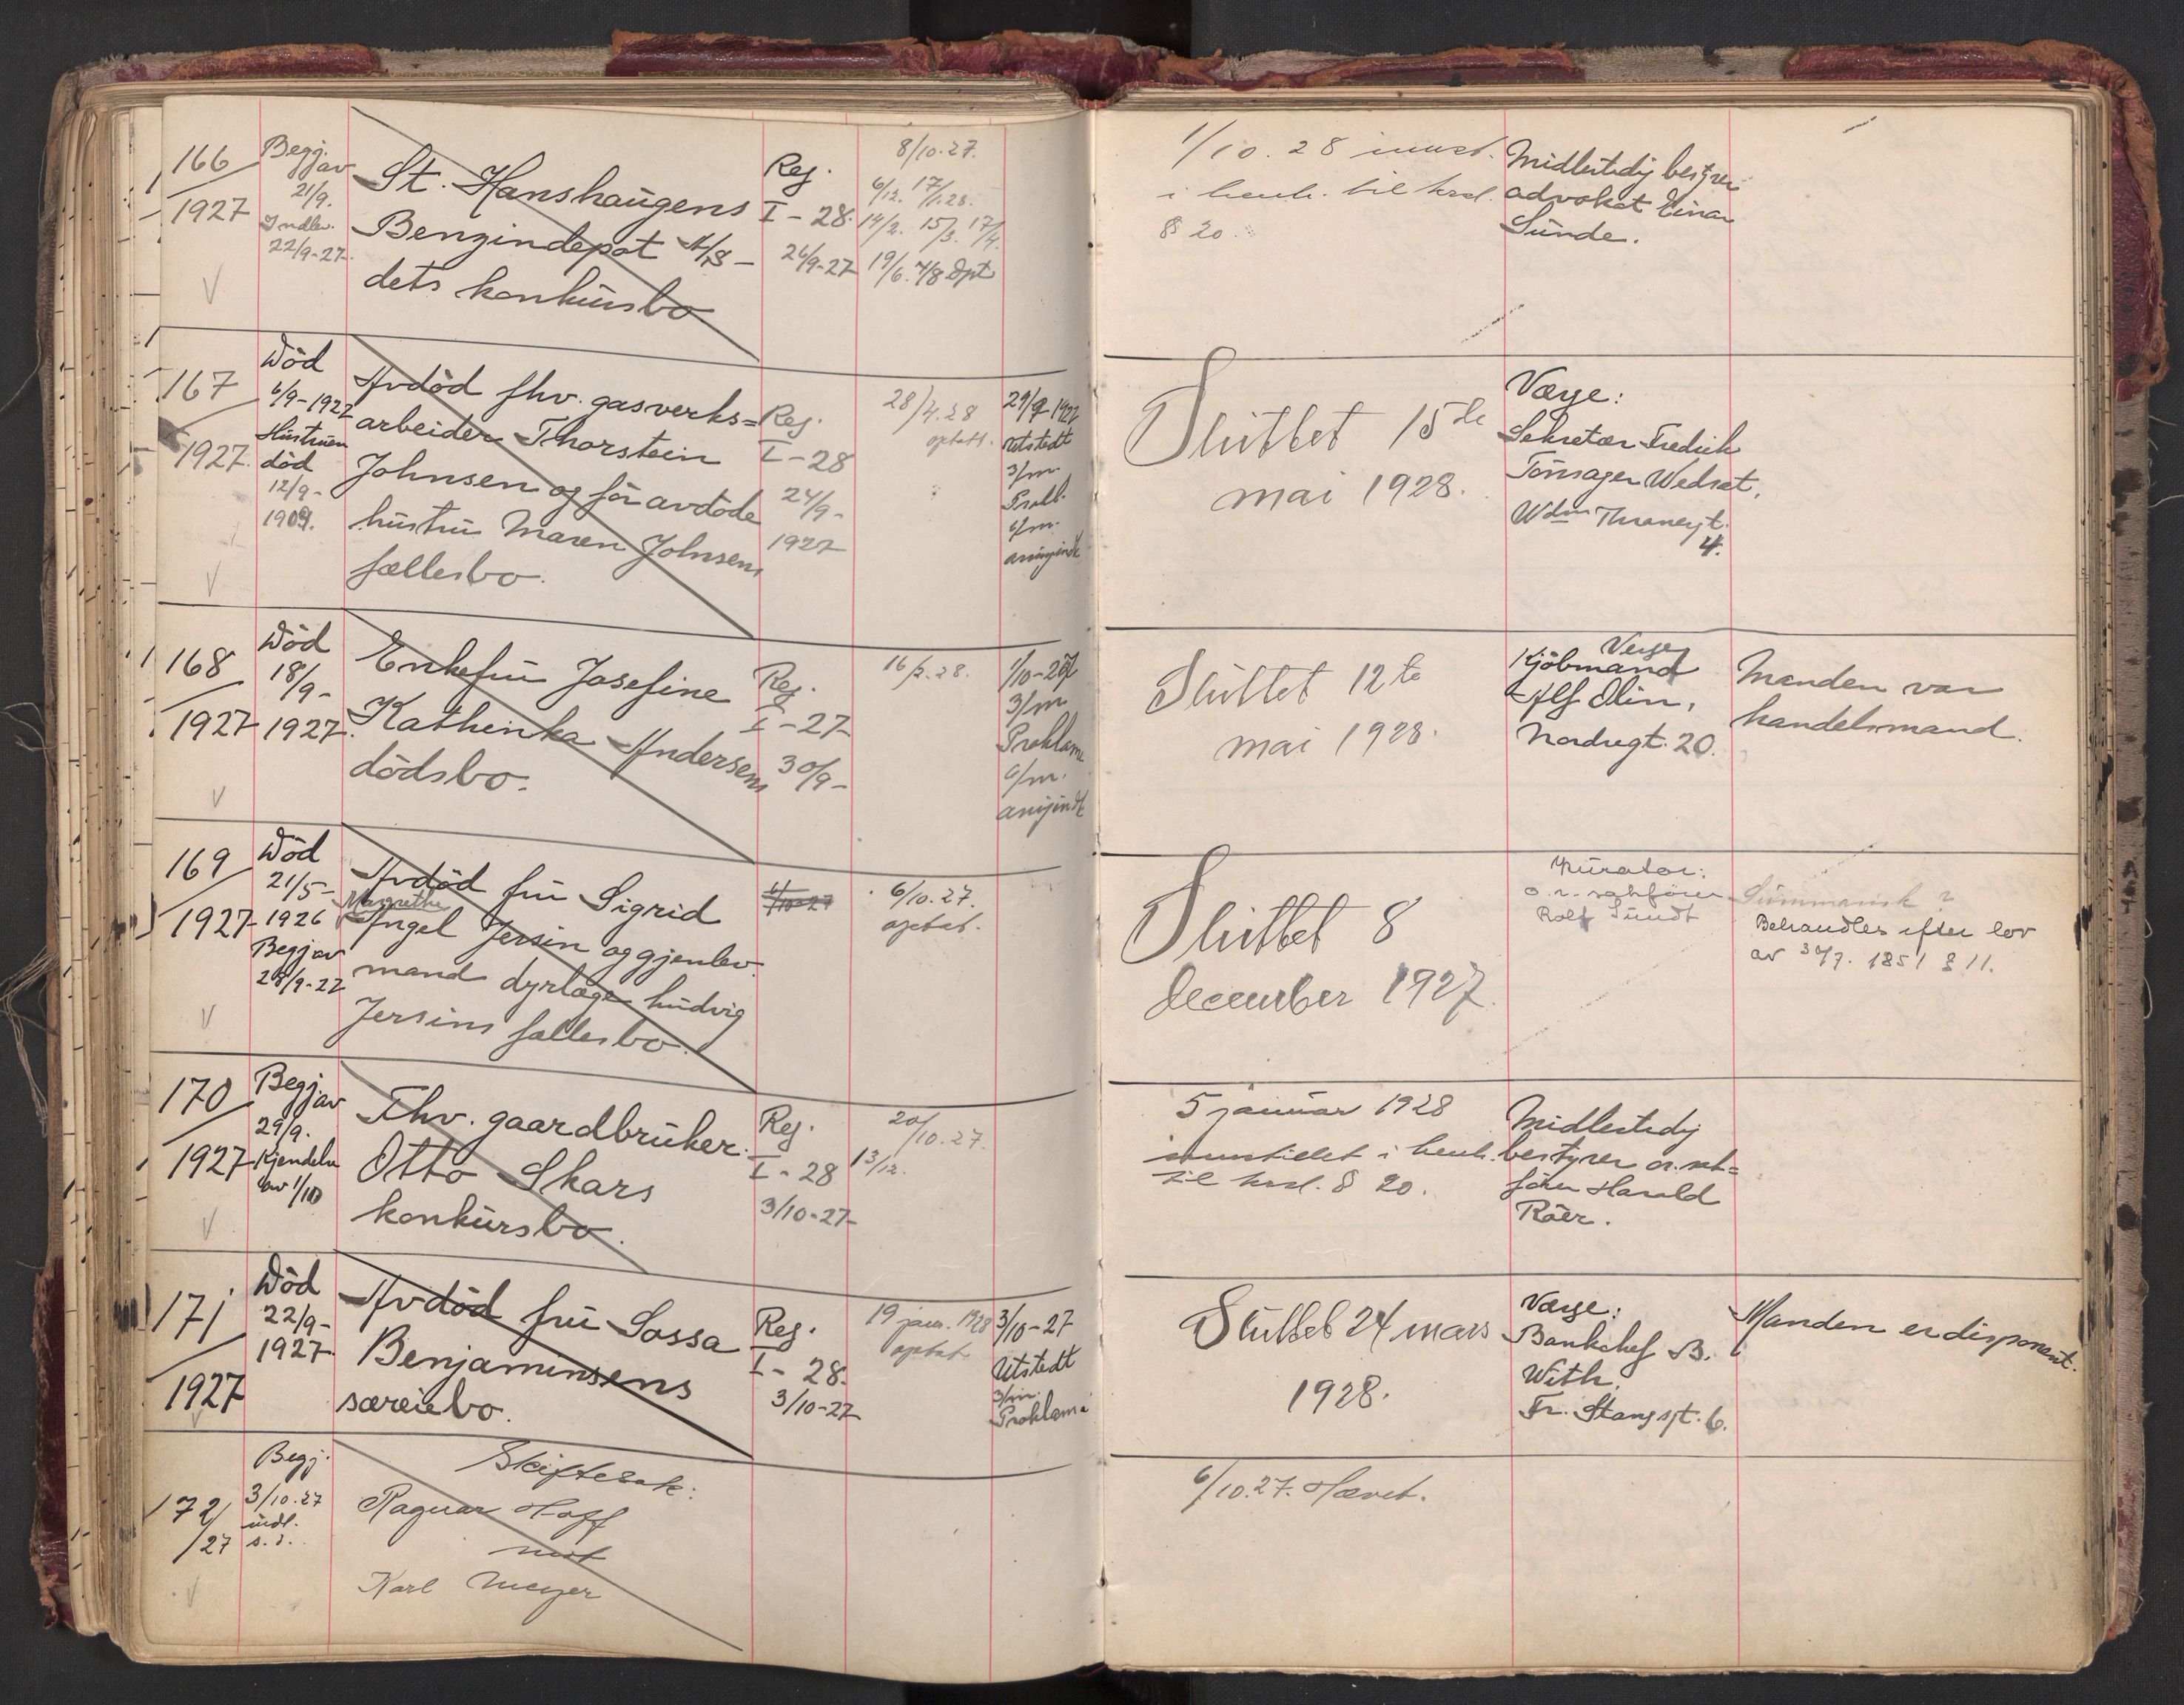 166
1927
Begj.
av
21/9.
Indlev.
22/9-27.
St. Hanshaugens
Benzindepot A/S -
dets konkursbo
Reg.
I - 28.
26/9-27
8/10.27.
6/12. 17/1.28.
14/2. 15/3. 17/4.
19/6. 4/8 Opt
1/10. 28 innst.
i henh. til krsl.
§ 20.
Midlertidig bestyrer
advokat Einar
Sunde.
167
1927.
Död
6/9-1927
Hustruen
död
12/9-
1909.
Avdöd fhv. gasverks=
arbeider Thorstein
Johnsen og för avdöde
hustru Maren Johnsens
fællesbo.
Reg.
I - 28
24/9-
1927
28/4.28
optatt.
29/9-1927
utstedt
3/m
Prokl.
6/m.
Sluttet 15de
mai 1928.
Værge:
Sekretær Fredrik
Tönsager Wedset,
Wdm Thranesgt.
4.
168
1927
Död
18/9-
1927.
Enkefru Josefine
Kathinka Andersens
dödsbo.
Reg.
I - 27
30/9-
16/2.28.
1/10-27
3/m
Proklama
6/m.
Sluttet 12te
mai 1928.
Verge
Kjöbmand
Alf Olin,
Nordregt. 20.
Manden var
handelsmand.
169
1927
Död
21/5-
1926
Begj av
28/9-27
Avdöd fru Sigrid
Margrethe
Ingel Jersin og gjenlev.
mand dyrlæge Ludvig
Jersins fællesbo.
6/10-27
6/10.27.
optat.
Sluttet 8
december 1927.
Kurator:
o.r. sakförer
Rolf Sundt
Summarisk?
Behandles efter lov
av 30/7. 1851 § 11.
170
1927
Begj av
29/9.
Kjendelse
av 1/10
Fhv. gaardbruker
Otto Skars
konkursbo.
Reg.
I - 28
3/10-27
20/10.27.
13/12.
5 januar 1928
innstillet i henh.
til krsl. § 20.
Midlertidig
bestyrer or. sak=
förer Harald
Röer.
171
1927
Död
22/9-
1927
Avdöd fru Sossa
Benjaminsens
særeiebo.
Reg.
I - 28.
3/10-27
19 jan. 1928
optat
3/10-27
Utstedt
3/m.
Proklama
Sluttet 24 mars
1928.
Værge:
Bankchef B.
With.
Fr. Stangsgt. 6.
Manden er disponent.
172/
/27
Begj.
3/10.27
indl.
s.d.
Skiftesak:
Ragnar Hoff
mot
Karl Meyer
6/10.27. Hævet.